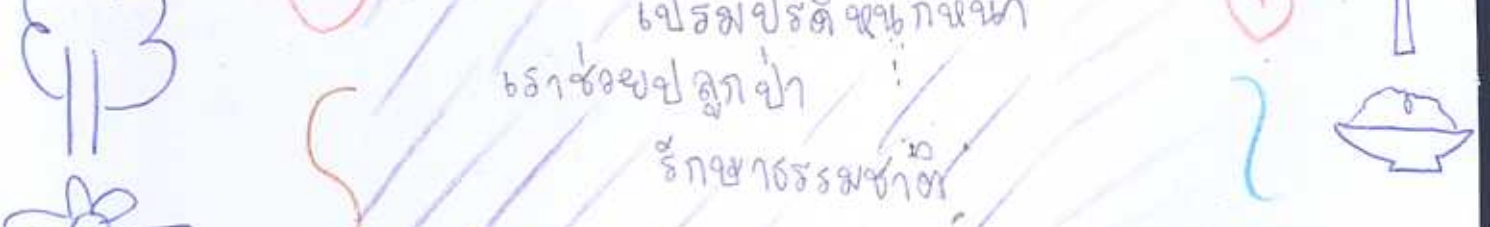 เปรมปรีดิ์หนุกหนา
เราช่วยปลูกป่า
รักษาธรรมชาติ